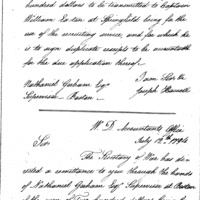 hundred dollars to be transmitted to Captain
William Eaton at Springfield being for the
use of the recruiting service, and for which he
is to sign duplicate receipts to be accountable
for the due application thereof.
I am Sir &c
Nathaniel Gorham Esqr
Joseph Howell
Supervisor Boston
W. D. Accountants Office
July 12th 1794
Sir
The Secretary of War has dir
ected a remittance to you through the hands
of Nathaniel Gorham Esqr Supervisor at Boston
of the sum of Two hundred dollars being